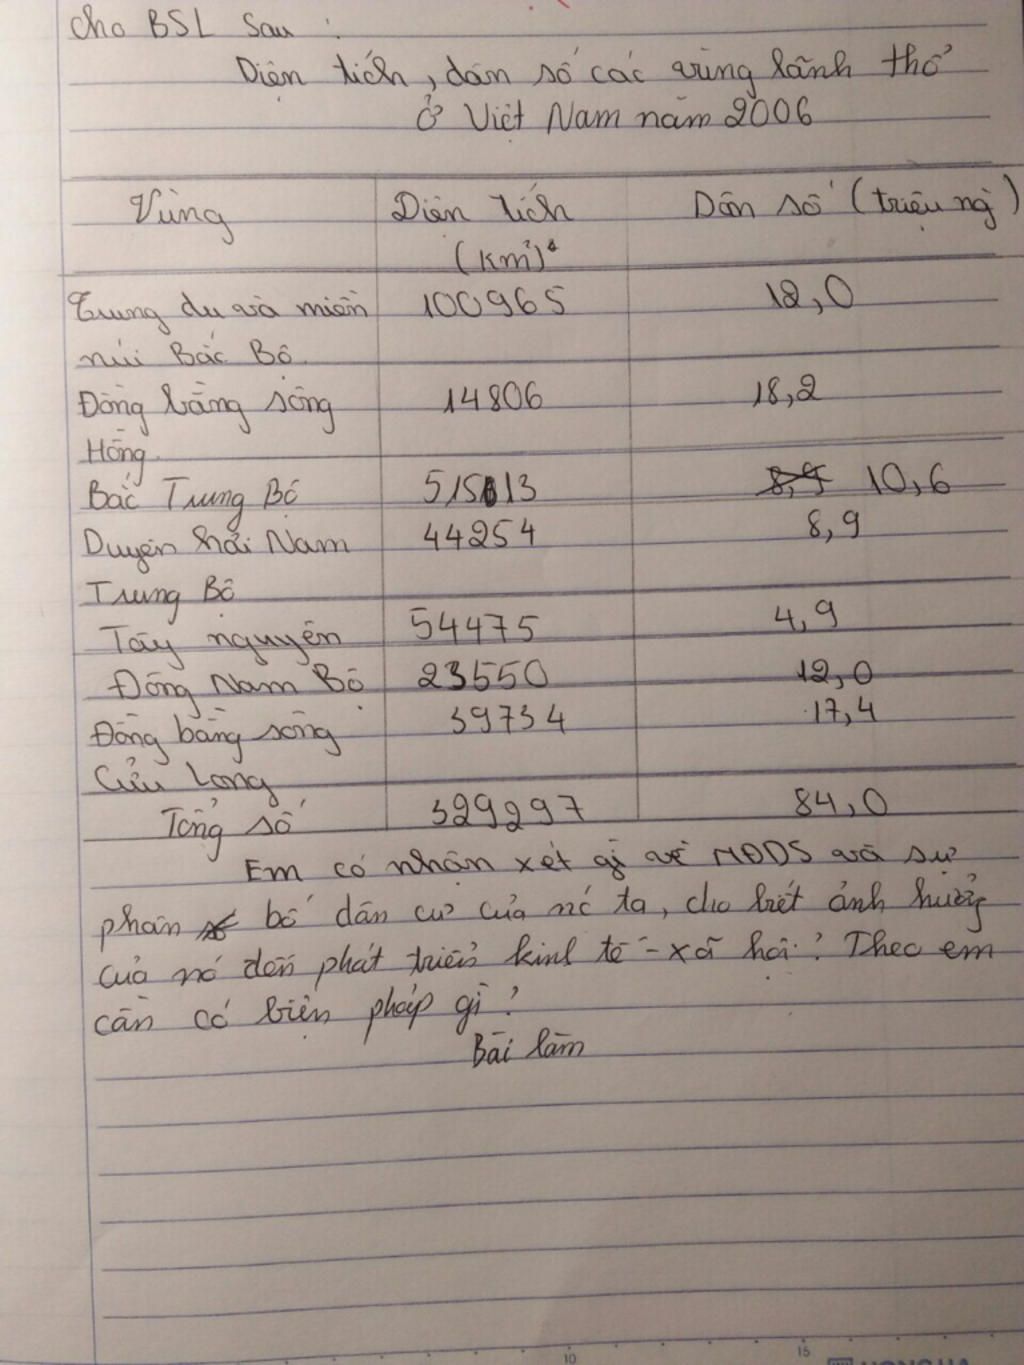 Cho BSL sau :
Diện tích, dân số các vùng lãnh thổ
ở Việt Nam năm 2006
Vùng Diện tích Dân số (triệu ng)
(km²)
Trung du và miền 100965 12,0
núi Bắc Bộ.
Đồng bằng sông 14806 18,2
Hồng
Bắc Trung Bộ 51513 10,6
Duyên hải Nam 44254 8,9
Trung Bộ
Tây nguyên 54475 4,9
Đông Nam Bộ 23550 12,0
Đồng bằng sông 39734 17,4
Cửu Long
Tổng số 329297 84,0
Em có nhận xét gì về MĐDS và sự
phân bố dân cư của nc ta, cho biết ảnh hưởng
của nó đến phát triển kinh tế - xã hội? Theo em
cần có biện pháp gì?
Bài làm
10 15
HONG HA